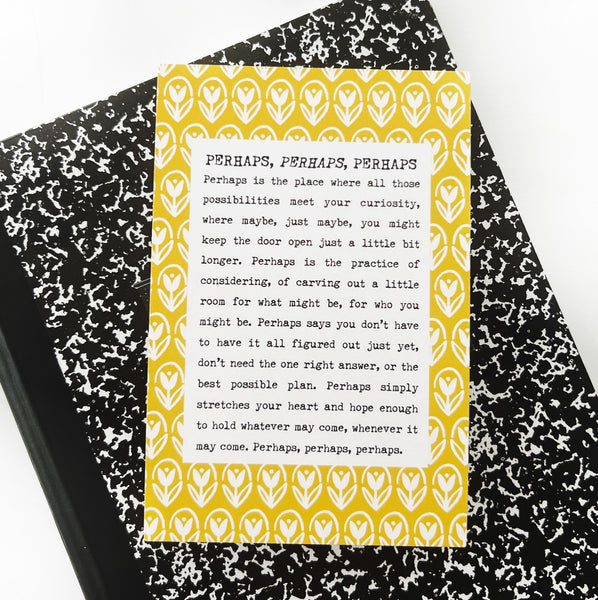 PERHAPS, PERHAPS, PERHAPS
Perhaps is the place where all those
possibilities meet your curiosity,
where maybe, just maybe, you might
keep the door open just a little bit
longer. Perhaps is the practice of
considering, of carving out a little
room for what might be, for who you
might be. Perhaps says you don't have
to have it all figured out just yet,
don't need the one right answer, or the
best possible plan. Perhaps simply
stretches your heart and hope enough
to hold whatever may come, whenever it
may come. Perhaps, perhaps, perhaps.